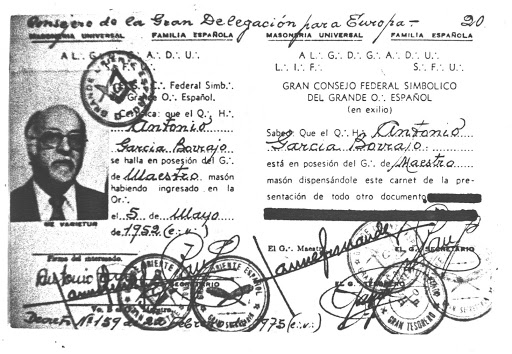 Consejero de la Gran Delegación para Europa - 20
MASONERIA UNIVERSAL FAMILIA ESPAÑOLA
A L∴ G∴ D∴ G∴ A∴ D∴ U∴
F∴
Federal Simb∴
Grande O∴ Español.
Certifica: que el Q∴ H∴
Antonio
García Borrajo
se halla en posesión del G∴
de Maestro masón
habiendo ingresado en la
Or∴
el 5 de Mayo
de 1952 (e∴v∴)
NE VARIETUR
Firma del interesado.
SECRETARIO
Decreto Nº 159 de 1975 (e∴v∴)
MASONERIA UNIVERSAL FAMILIA ESPAÑOLA
A L∴ G∴ D∴ G∴ A∴ D∴ U∴
L∴ I∴ F∴ S∴ F∴ U∴
GRAN CONSEJO FEDERAL SIMBOLICO
DEL GRANDE O∴ ESPAÑOL
(en exilio)
Sabed Que el Q∴ H∴ Antonio
García Borrajo
está en posesión del G∴ de Maestro
masón dispensándole este carnet de la pre-
sentación de todo otro documento
El G∴ Maestro
EL G∴ SECRETARIO
EL G∴
GRAN TESORERO